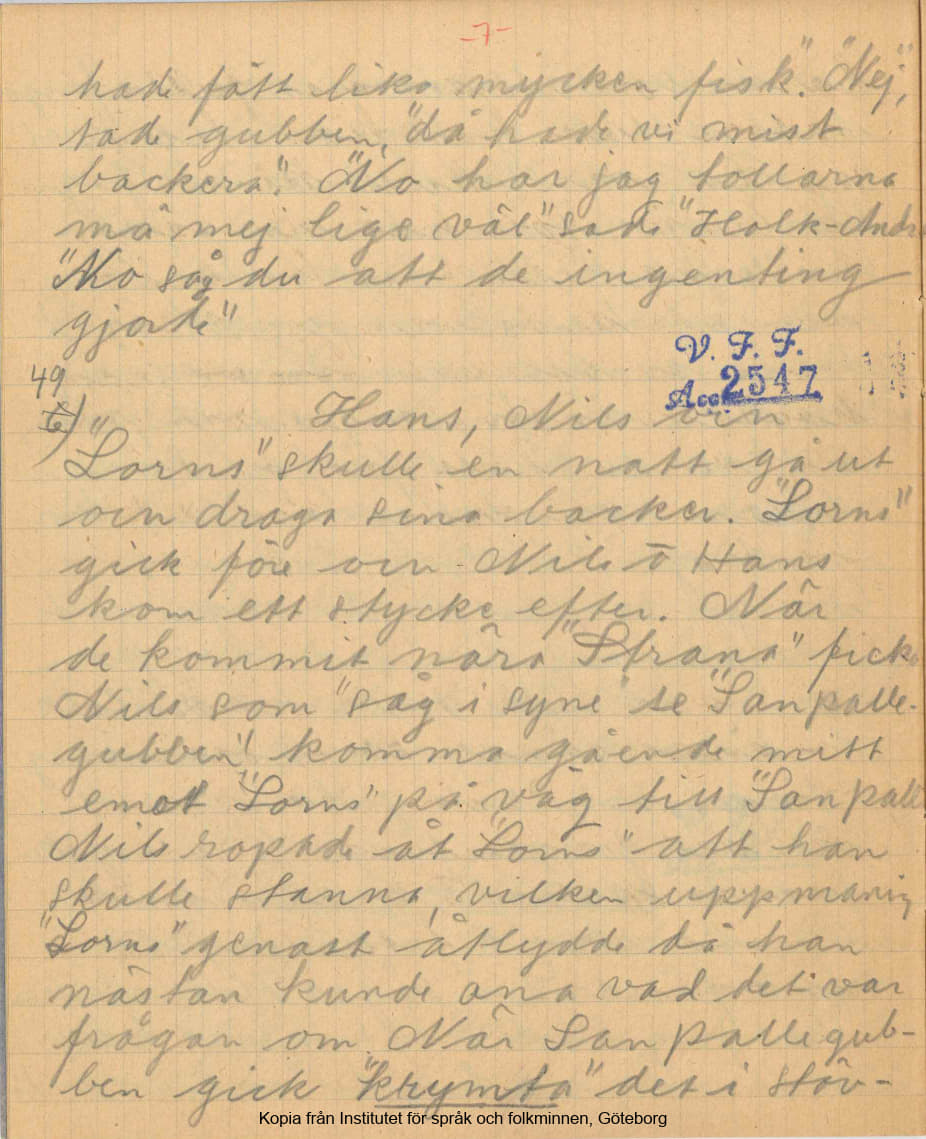 -7-
hade fått lika mycken fisk." "Nej",
sade gubben, "då hade vi mist
backera". "No har jag tollarna
må mej lige väl" sade "Holk-Andr
"No såg du att de ingenting
gjorde"
V. F. F.
Acc. 2547
49
Hans, Nils ocn
"Lorns" skulle en natt gå ut
ocn draga sina backer. "Lorns"
gick före ocn Nils o Hans
kom ett stycke efter. När
de kommit nära "Strana" fick
Nils som "såg i syne" se "Sanpalle-
gubben" komma gående mitt
emot "Lorns" på väg till "Sanpalle
Nils ropade åt "Lorns" att han
skulle stanna, vilken uppmaning
"Lorns" genast åtlydde då han
nästan kunde ana vad det var
frågan om. När Sanpallegub-
ben gick "krymta" det i stöv-
Kopia från Institutet för språk och folkminnen, Göteborg